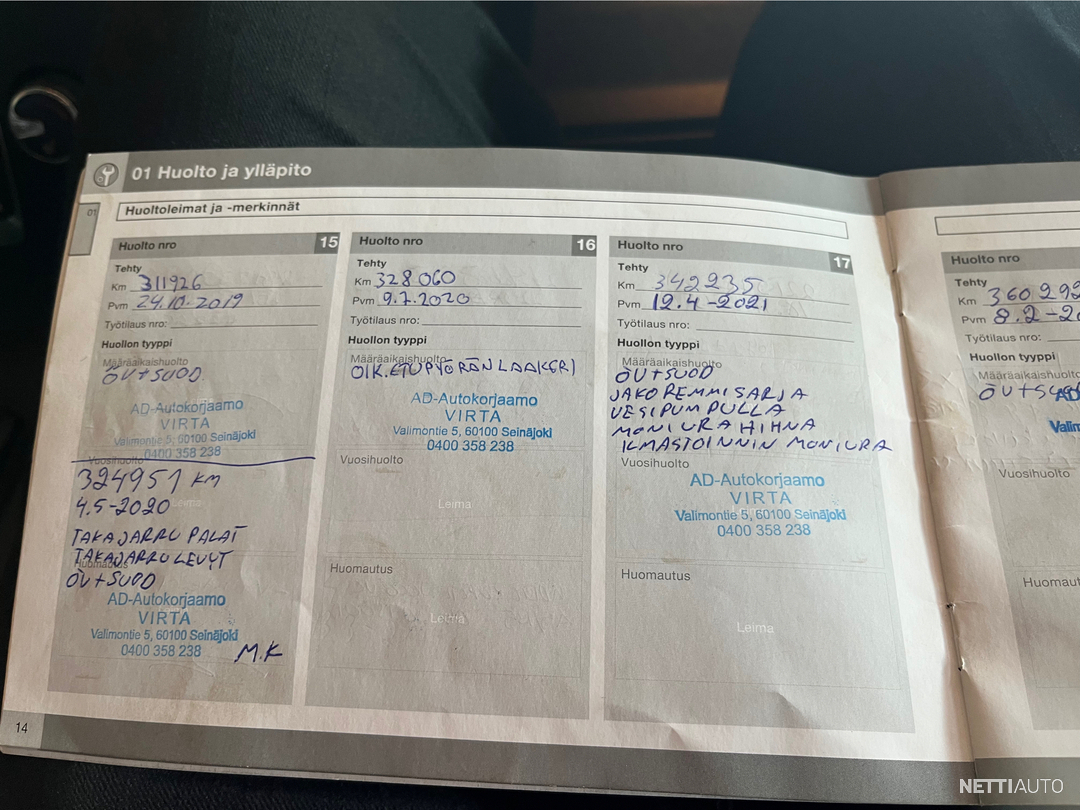 01 Huolto ja ylläpito
01
Huoltoleimat ja -merkinnät
Huolto nro 15
Tehty
Km 311926
Pvm 24.10.2019
Työtilaus nro:
Huollon tyyppi
Määräaikaishuolto
ÖV+SUOD
AD-Autokorjaamo
VIRTA
Valimontie 5, 60100 Seinäjoki
0400 358 238
Vuosihuolto
324951 KM
4.5-2020
Leima
TAKAJARRU PALAT
TAKAJARRULEVYT
Huomautus
ÖV+SUOD
AD-Autokorjaamo
VIRTA
Valimontie 5, 60100 Seinäjoki
0400 358 238
M.K
Huolto nro 16
Tehty
Km 328060
Pvm 9.7.2020
Työtilaus nro:
Huollon tyyppi
Määräaikaishuolto
OIK.ETUPYÖRÄN LAAKERI
AD-Autokorjaamo
VIRTA
Valimontie 5, 60100 Seinäjoki
0400 358 238
Vuosihuolto
Leima
Huomautus
Leima
Huolto nro
17
Tehty
Km 342235
Pvm 12.4-2021
Työtilaus nro:
Huollon tyyppi
Määräaikaishuolto
ÖV+SUOD
JAKOREMMISARJA
VESIPUMPULLA
MONIURAHIHNA
ILMASTOINNIN MONIURA
Vuosihuolto
AD-Autokorjaamo
VIRTA
Valimontie 5, 60100 Seinäjoki
0400 358 238
Huomautus
Leima
Huolto nro
Tehty
Km 360292
Pvm 8.2-20
Työtilaus nro:
Huollon tyyppi
Määräaikaishu
ÖV+SUO
AD
Valim
Vuosihuolto
Huomautu
14
NETTIAUTO